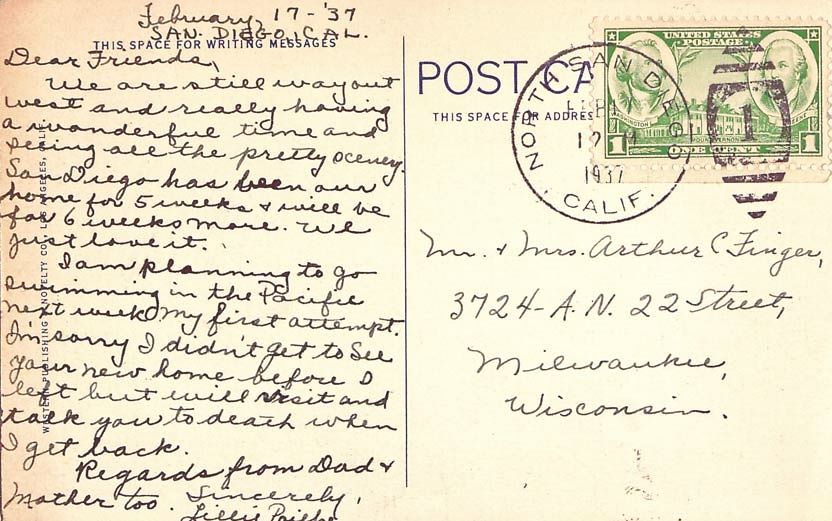 February, 17-'37
SAN. DIEGO, CAL.
THIS SPACE FOR WRITING MESSAGES
Dear Friends,
We are still way out
west and really having
a wonderful time and
seeing all the pretty scenery.
San Diego has been our
home for 5 weeks & will be
for 6 weeks more. We
just love it.
I am planning to go
swimming in the Pacific
next week, my first attempt.
I'm sorry I didn't get to see
your new home before I
left but will visit and
talk you to death when
I get back.
Regards from Dad &
Mother too. Sincerely,
Lillie
WESTERN PUBLISHING & NOVELTY CO., LOS ANGELES, CALIF.
POST CA
THIS SPACE FOR ADDRES
NORTH SAN DIEGO
FEB 17
1937
CALIF.
UNITED STATES
POSTAGE
WASHINGTON
MOUNT VERNON
1 ONE CENT 1
1
Mr. & Mrs. Arthur C Finger,
3724-A.N. 22 Street,
Milwaukee,
Wisconsin.